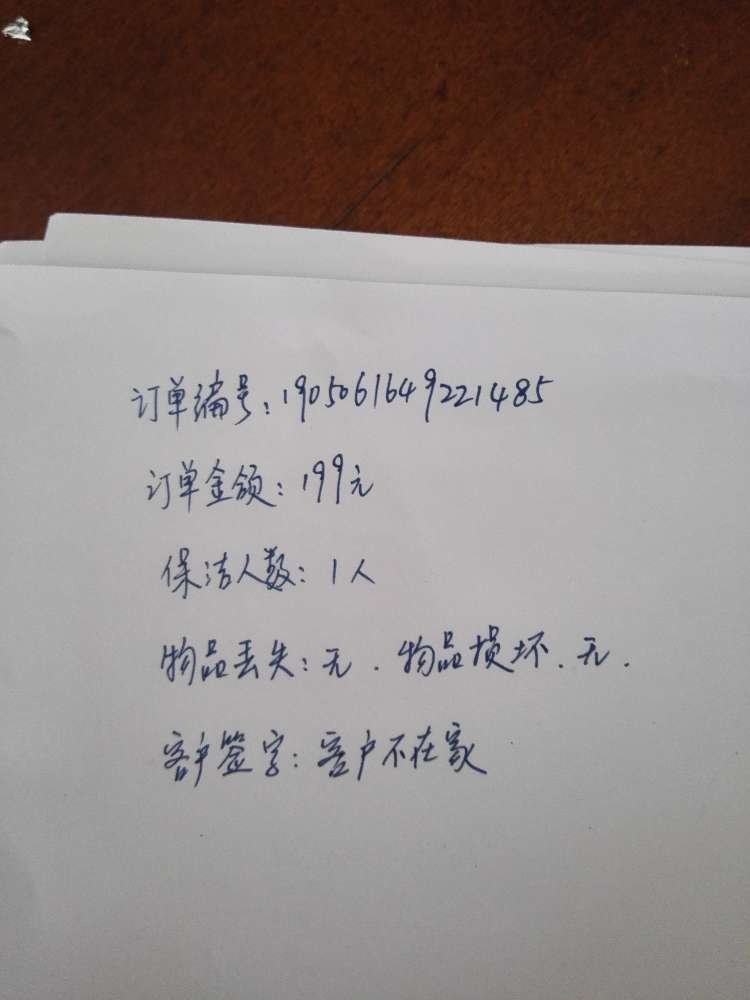 订单编号：1905061649221485
订单金额：199元
保洁人数：1人
物品丢失：无．物品损坏．无．
客户签字：客户不在家